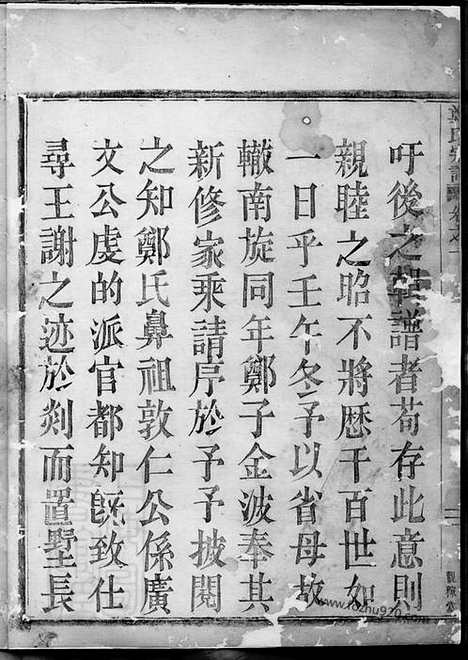 吁後之輯譜者苟存此意則
親睦之昭不將歷千百世如
一日乎壬午冬予以省母故
轍南旋同年鄭子金波奉其
新修家乘請序於予予披閱
之知鄭氏鼻祖敦仁公係廣
文公虔的派官都知旣致仕
尋王謝之迹於剡而置墅長
www.fozhu920.com